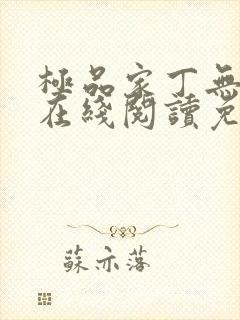 極品家丁無
在綫閱讀免
蘇亦落